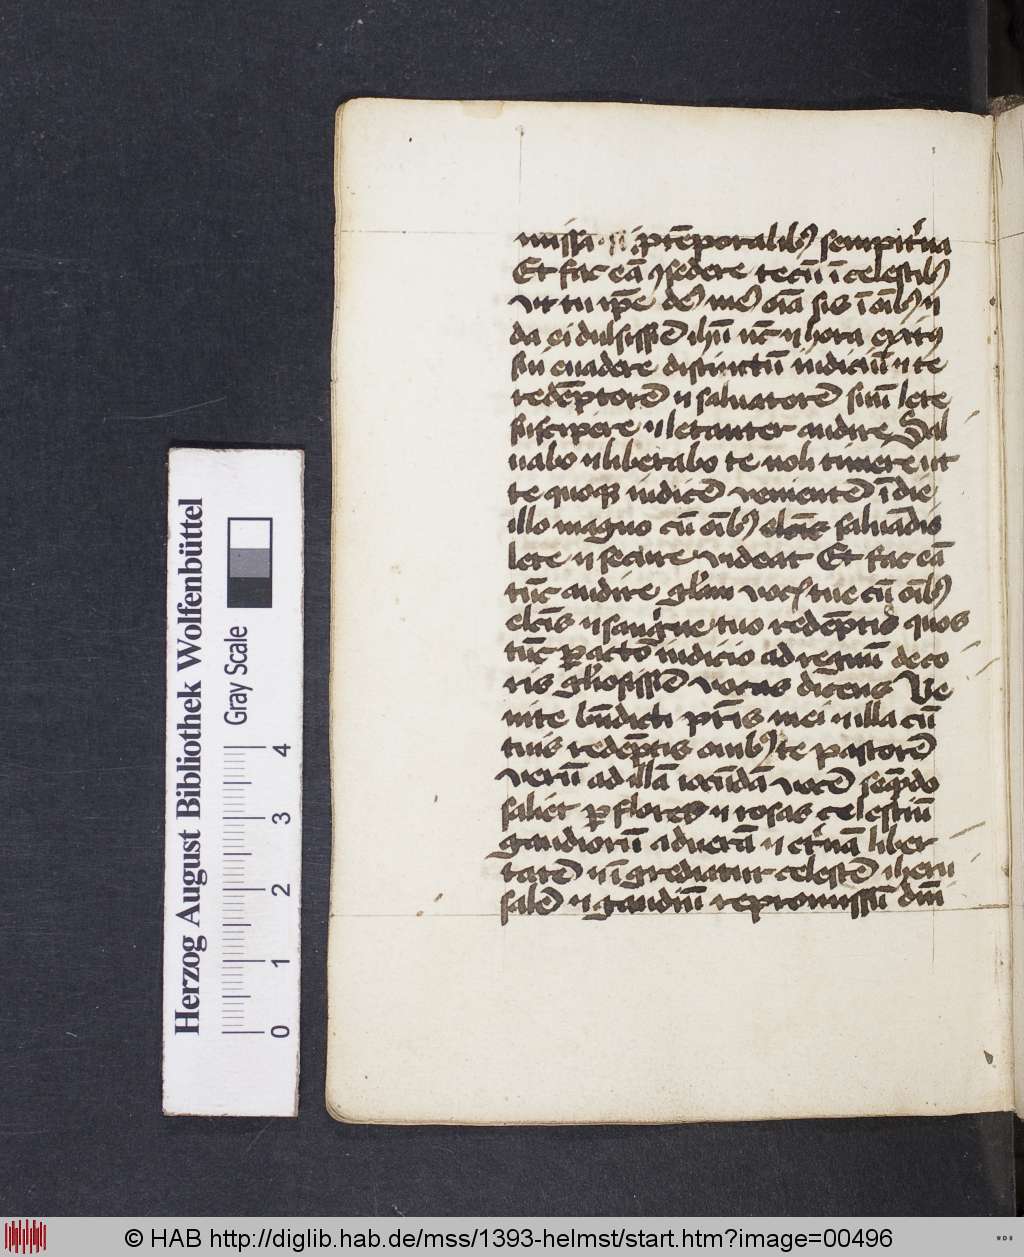 missā p̄ tēporalibꝰ sempit'na
Et fac eā ꝯsedere tecū ī celestibꝰ
vt tu ip̄e deꝰ meꝰ oīa sis ī oībꝰ ⁊
da ei dulsissīe ihū vt ⁊ hora exitꝰ
sui euadere districtū iudiciū ⁊ te
redēptorē ⁊ saluatorē suū lete
suscipere ⁊ letanter audire Sal
uabo ⁊ liberabo te noli timere ut
te quoqꝫ iudicē venientē ī die
illo magno cū oībꝰ saluādis
lete ⁊ secure videat Et fac eā
tūc audire vocis tue cū oībꝰ
elcīs ⁊ sangᵘine tuo redēptis quos
tūc ꝑacto iudicio ad regnū deco
ris gl'iosissīe vocas dicens Ve
nite bn̄dicti pr̄is mei ⁊ illa cū
tuis redēptis ouibꝰ te pastorē
verū ad illā iocūdā vocē seqᵘēdo
saliet ꝑ flores ⁊ rosas celestiū
gaudiorū ad uerā ⁊ et'nā liber
tatē ⁊ īgrediatur celestē iheru
salē ⁊ gaudiū repromissū dn̄i
Herzog August Bibliothek Wolfenbüttel
Gray Scale
0 1 2 3 4
© HAB http://diglib.hab.de/mss/1393-helmst/start.htm?image=00496